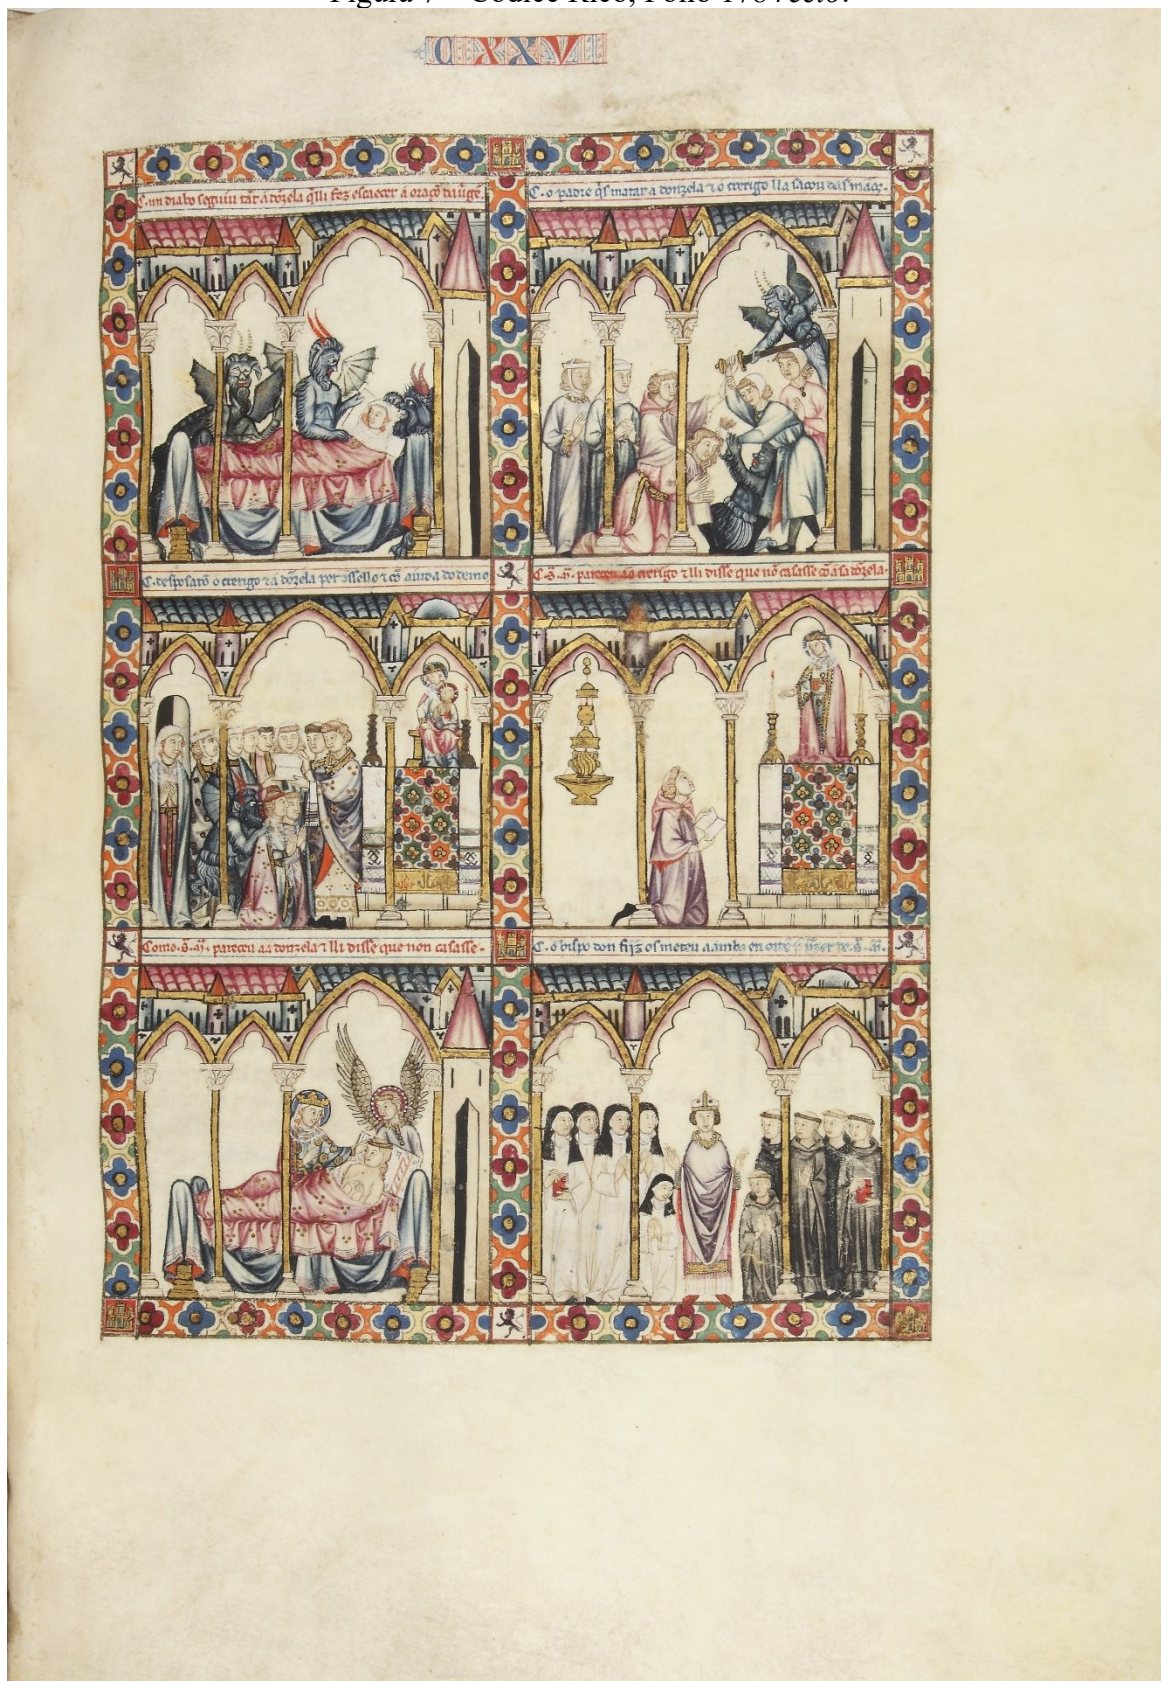 Códice Rico, Fólio
CXXV
C. un diabo seguiu tãt a dõzela q̃lli fez escaecer a oraçõ da uirgẽ
C. o padre q̃s matar a donzela ⁊ o crerigo lla sacou das mãos.
C. desposarõ o crerigo ⁊ a dõzela per consello ⁊ cõ aiuda do demo
C. S. M. pareceu ao crerigo ⁊ lli disse que nõ casasse cõ a sa dõzela.
Como. S. M. pareceu aa donzela ⁊ lli disse que non casasse.
C. o bispo don os meteu a ambos en ordẽ